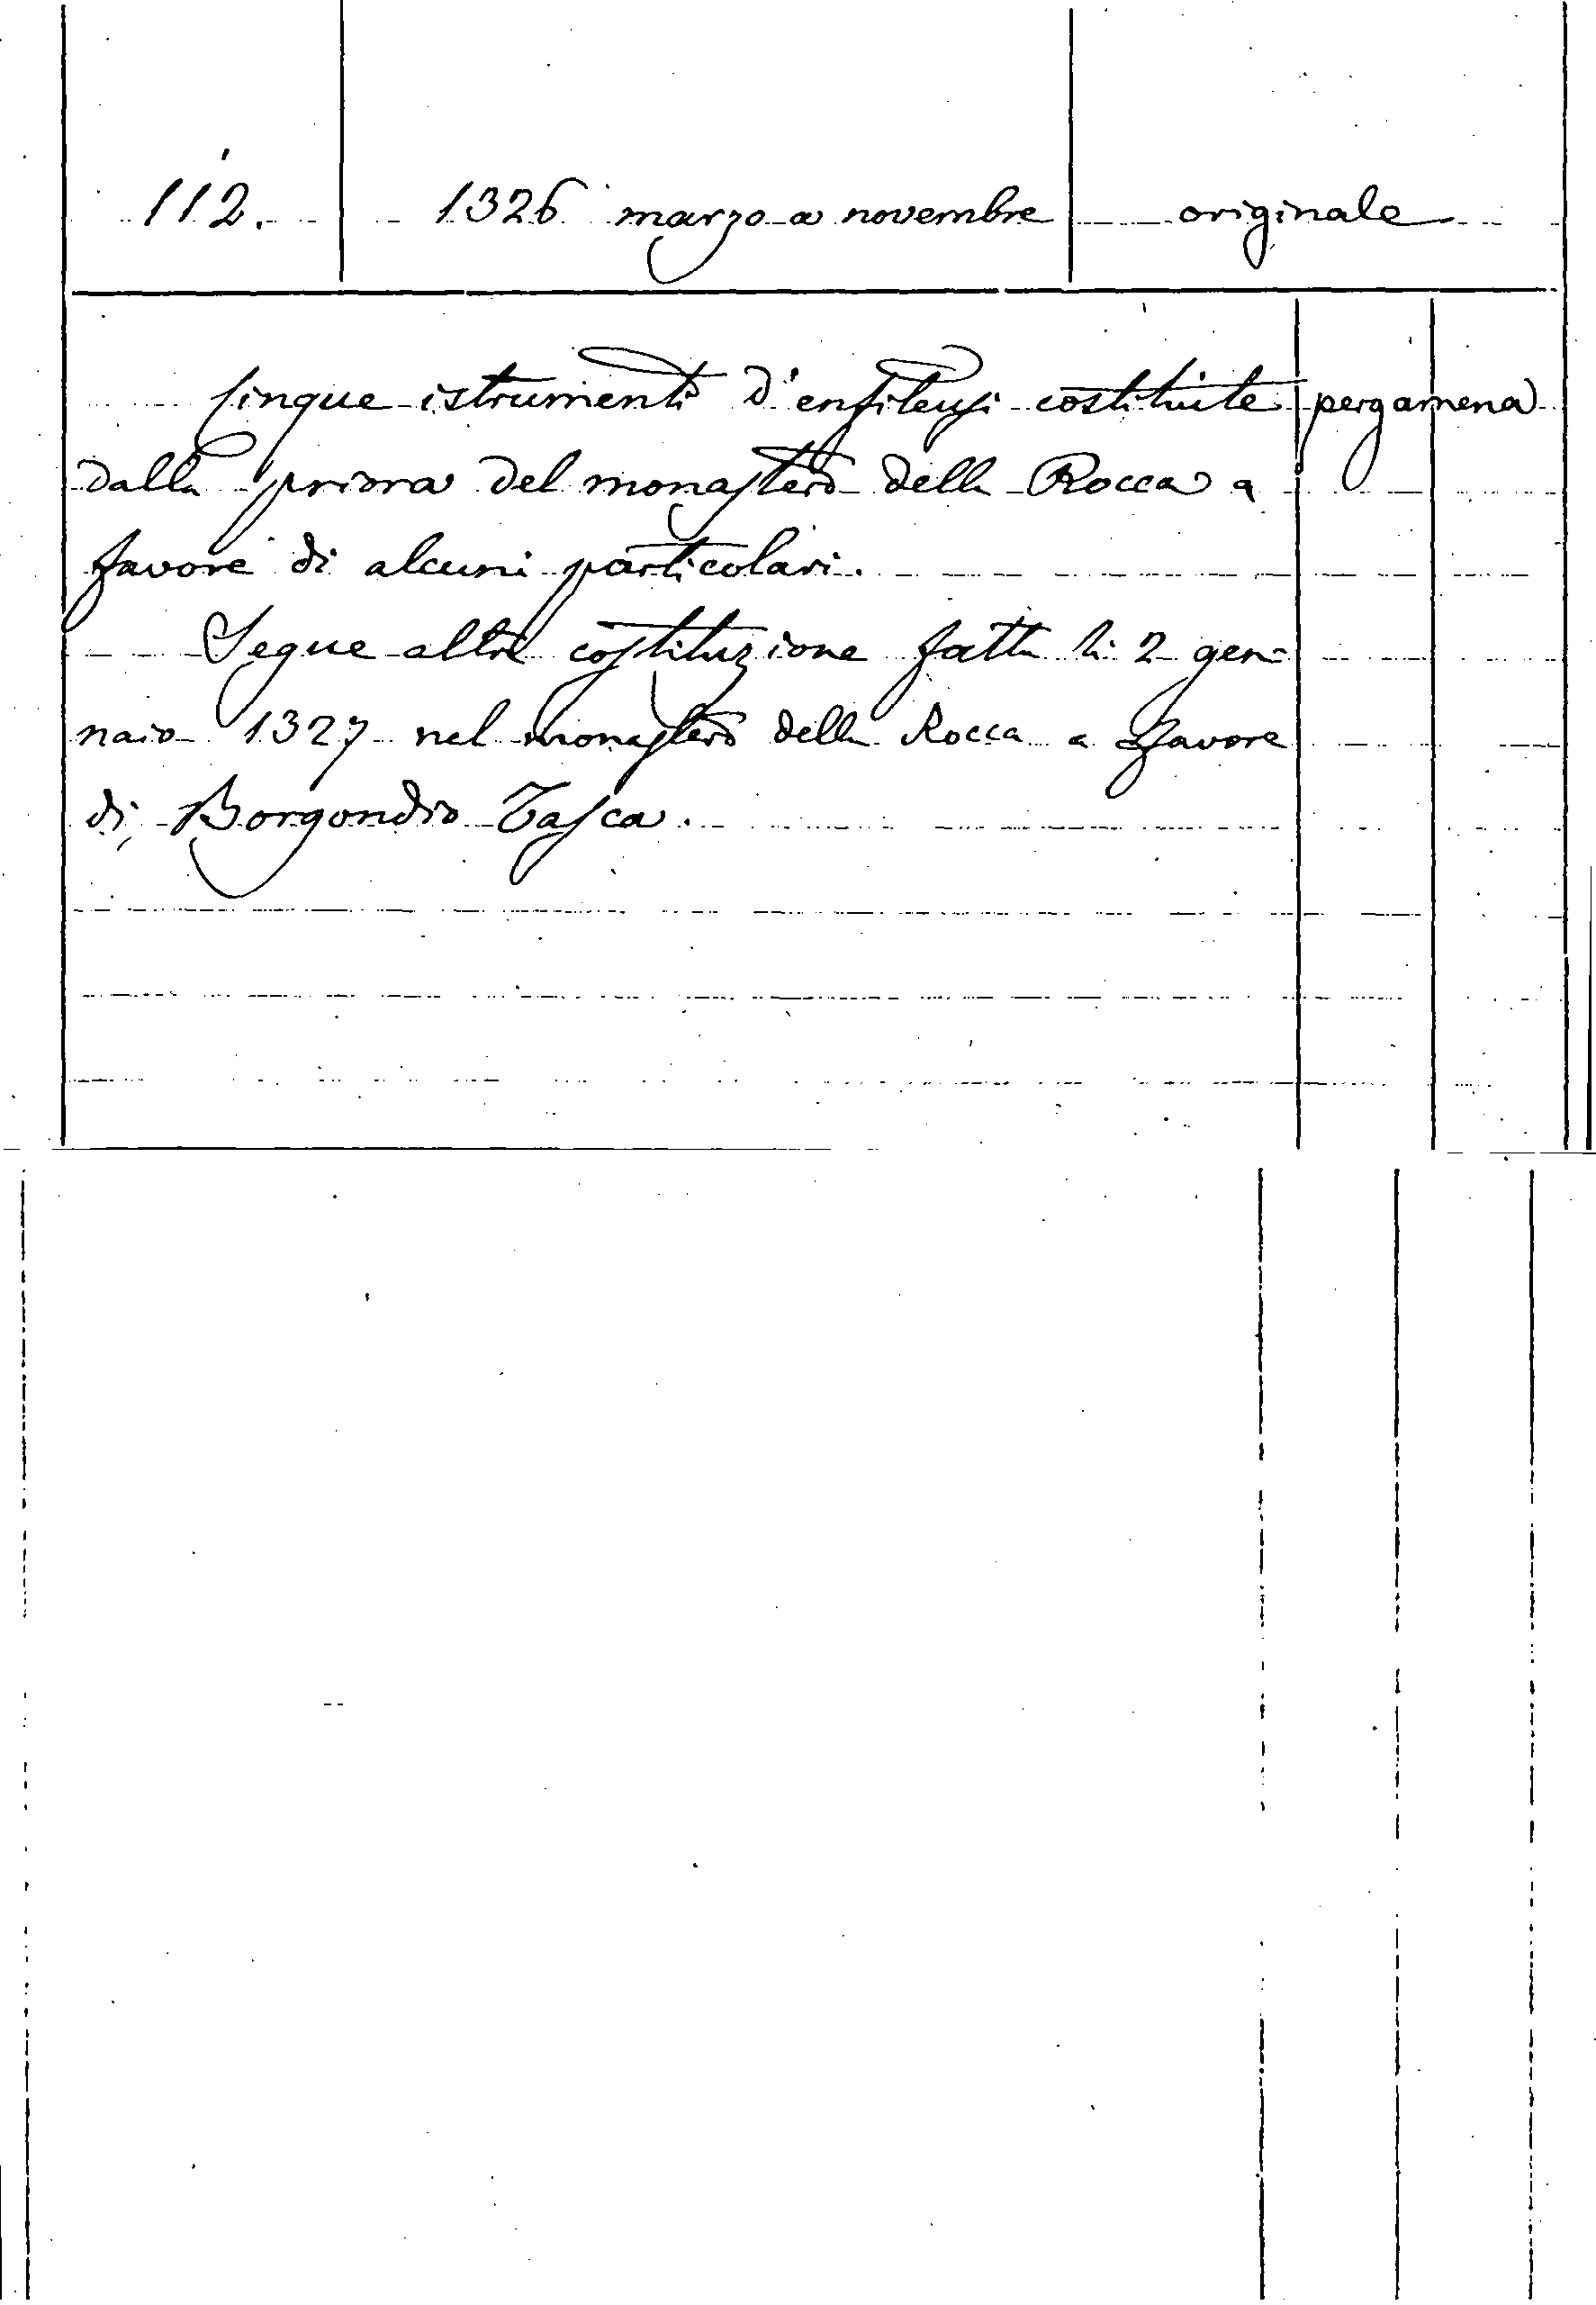 112. 1326 marzo a novembre originale
Cinque istrumenti d'enfiteusi costituite pergamena
dalla priora del monastero della Rocca a
favore di alcuni particolari.
Segue altra costituzione fatta li 2 gen-
naio 1327 nel monastero della Rocca a favore
di Borgondio Tasca.